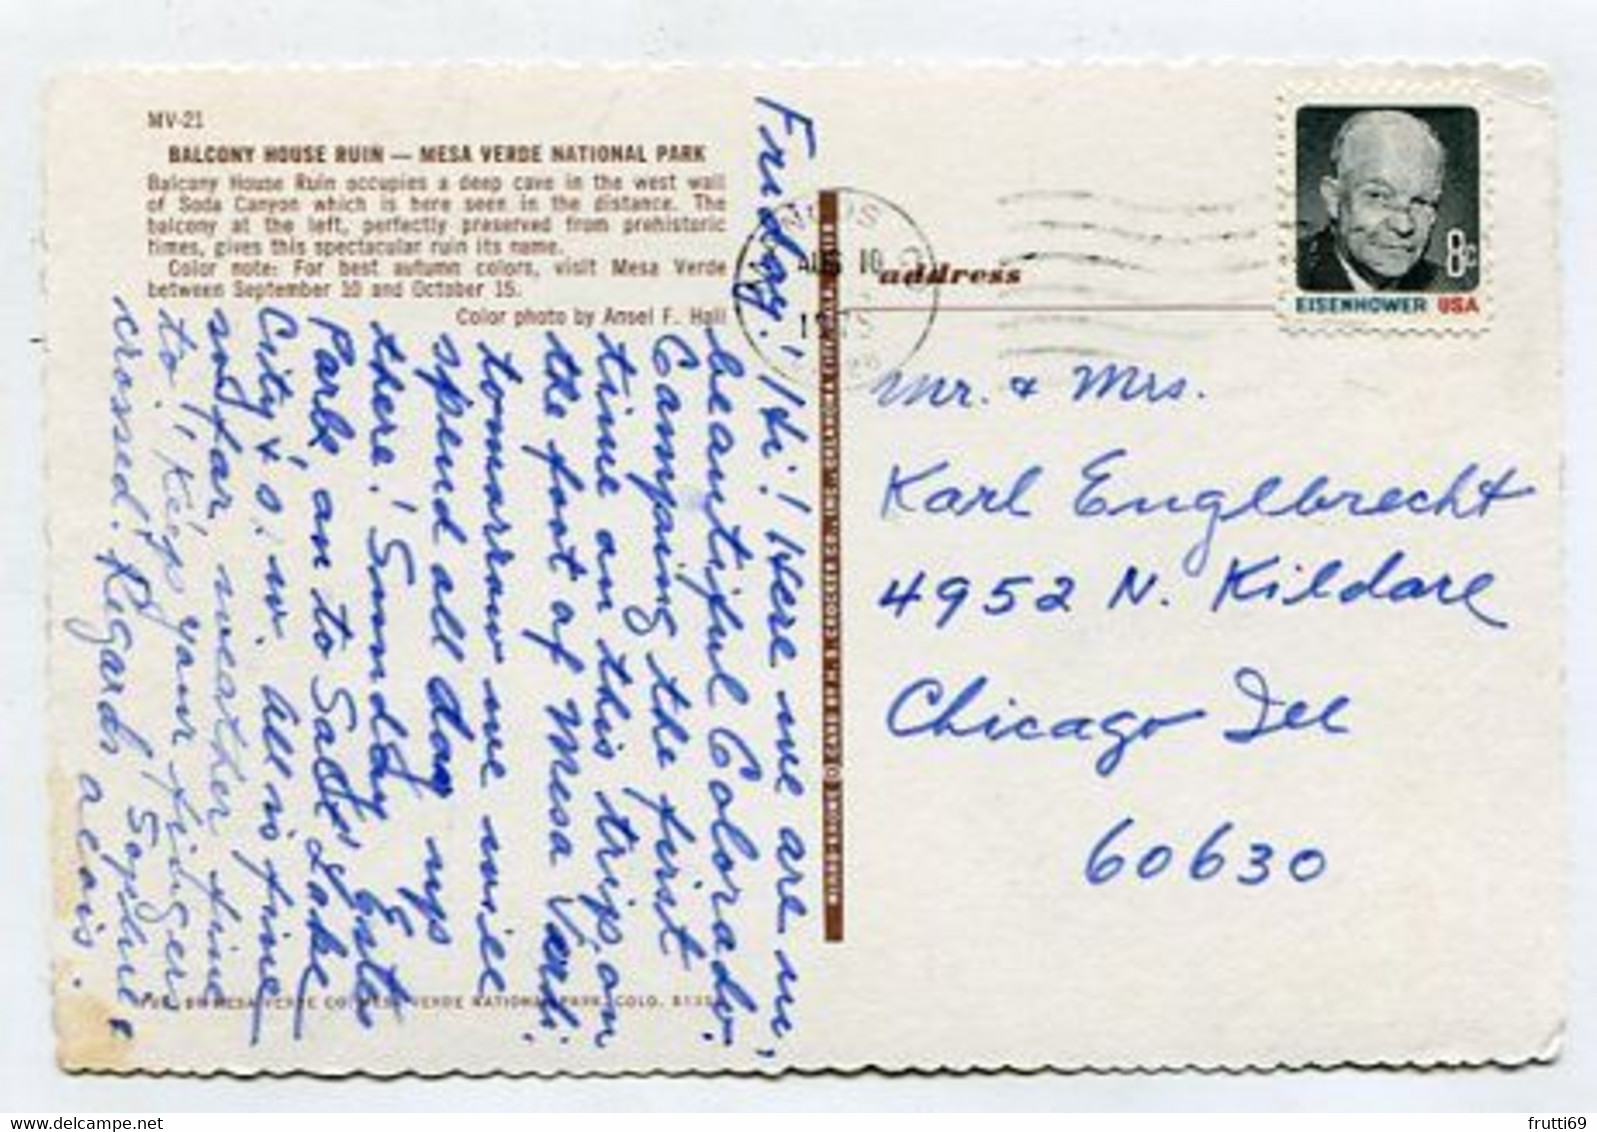 MV-21
BALCONY HOUSE RUIN — MESA VERDE NATIONAL PARK
Balcony House Ruin occupies a deep cave in the west wall
of Soda Canyon which is here seen in the distance. The
balcony at the left, perfectly preserved from prehistoric
times, gives this spectacular ruin its name.
Color note: For best autumn colors, visit Mesa Verde
between September 10 and October 15.
Color photo by Ansel F. Hall
Friday! Hi! Here we are in,
beautiful Colorado.
Camping the first
time on this trip, on
the foot of Mesa Verdi
tomorrow we will
spend all day up
there! Sunday Estes
Park, on to Salt Lake
City, &
so far weather fine
to! Keep your fingers
crossed. Regards Sophie
AUG 10
address
EISENHOWER USA
8c
Mr. & Mrs.
Karl Englbrecht
4952 N. Kildare
Chicago Ill
60630
MESA VERDE CO., MESA VERDE NATIONAL PARK, COLO.
CARD BY H. S. CROCKER CO., INC., OKLAHOMA CITY, OKLA.
frutti69